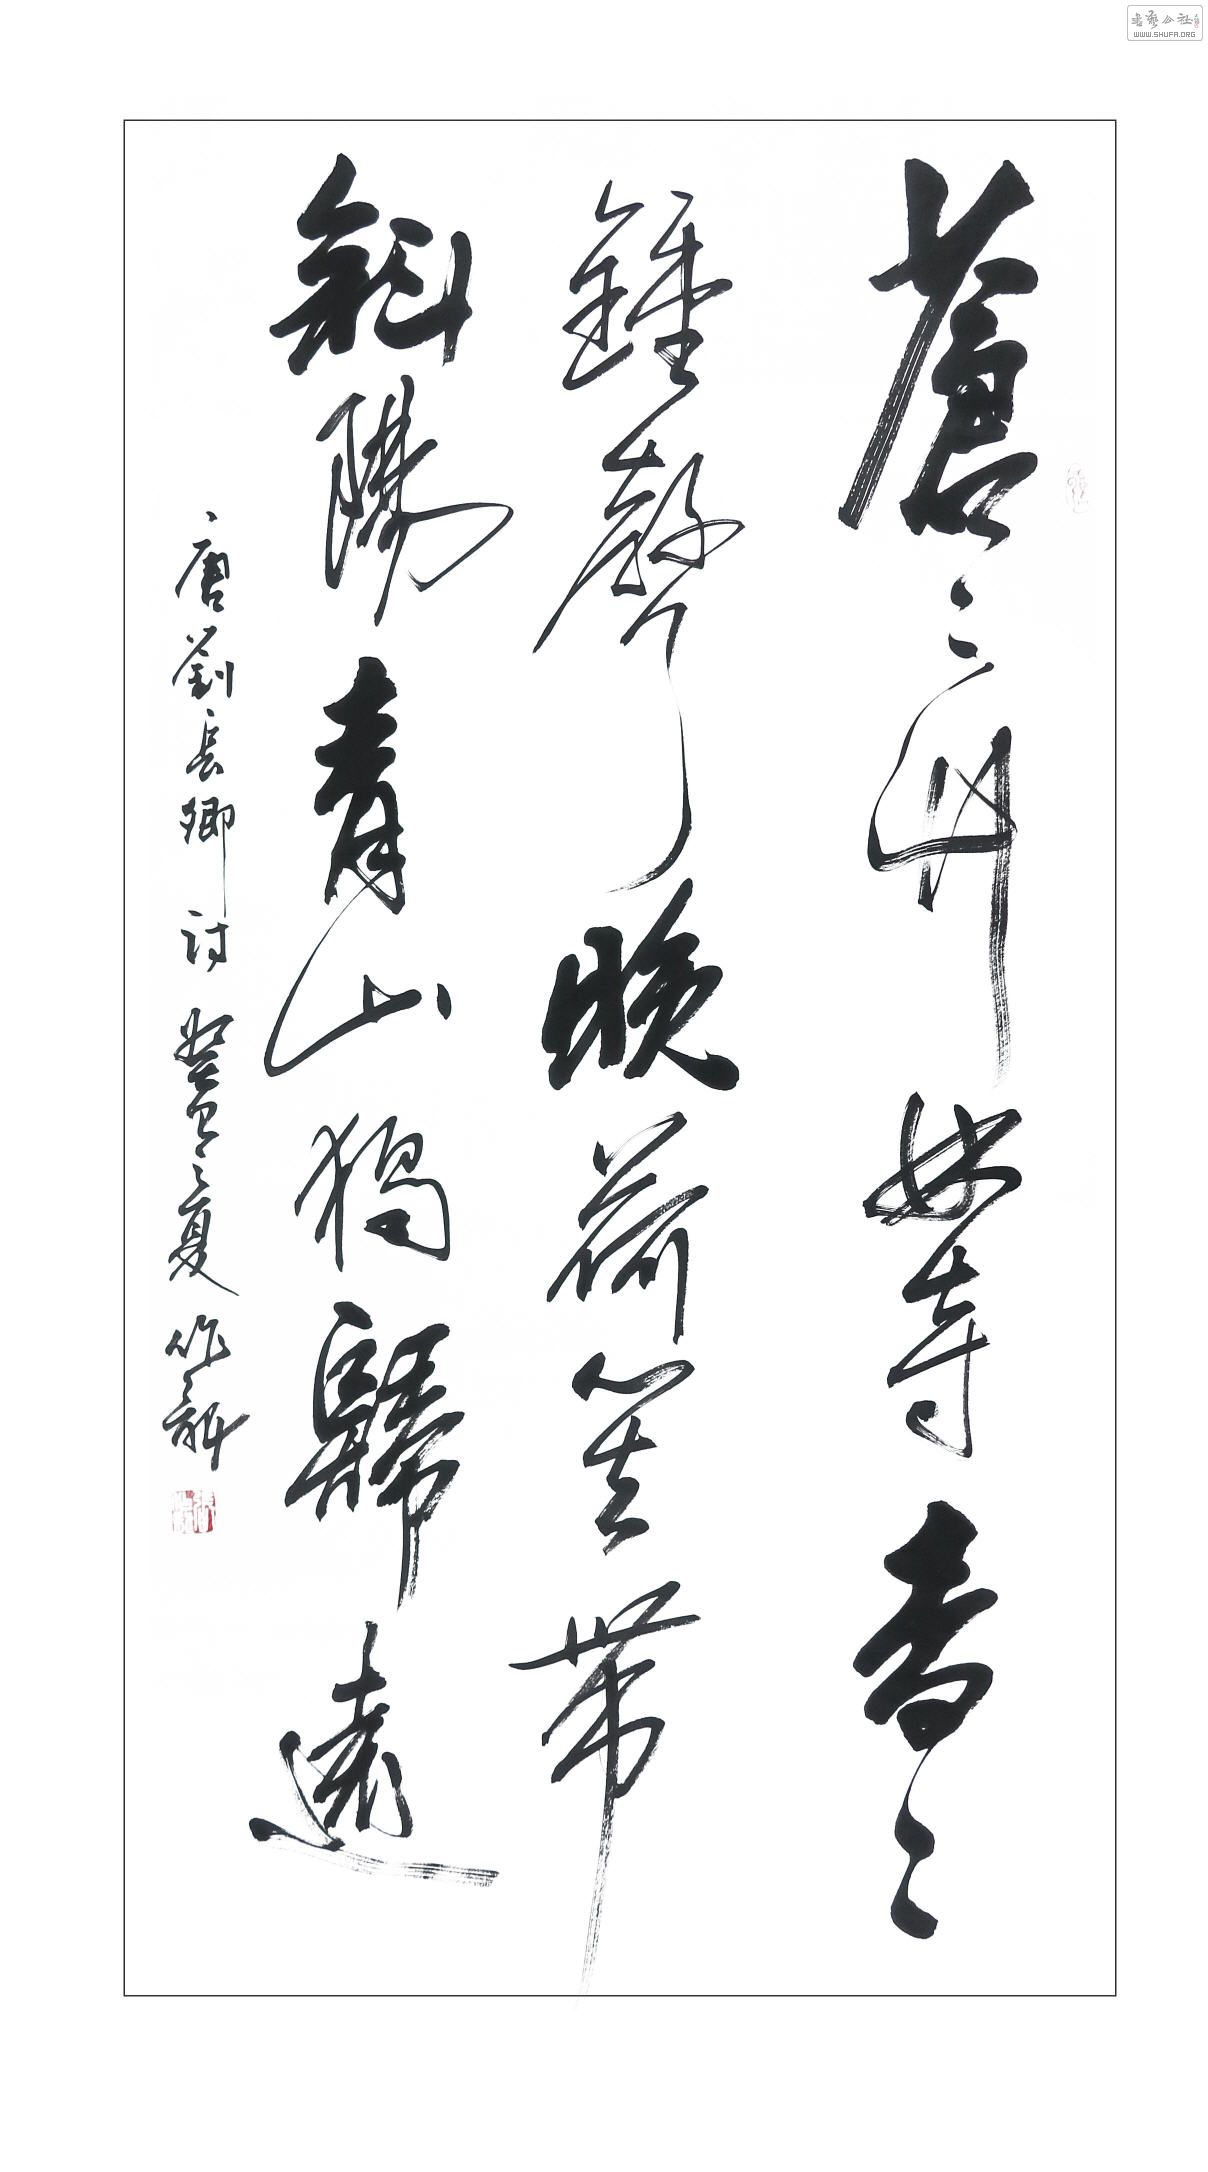 書藝公社
WWW.SHUFA.ORG
蒼〻竹林寺杳〻
鍾聲晚荷笠帶
斜陽青山獨歸遠
唐劉長卿詩癸巳之夏作